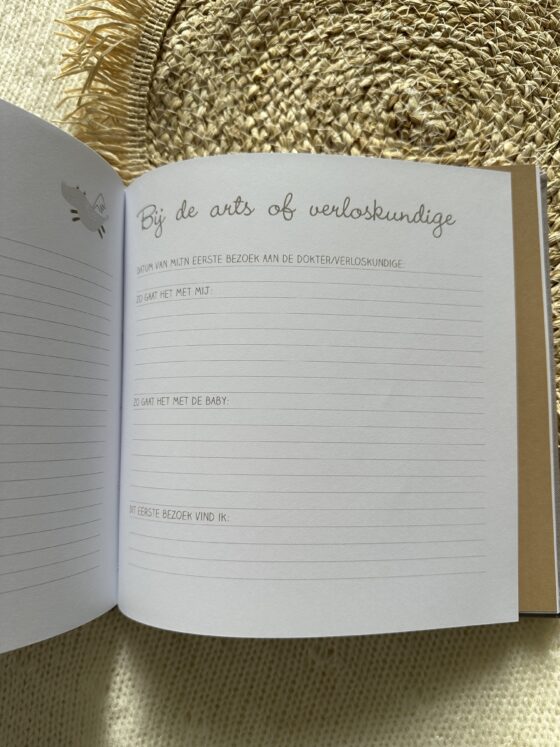 Bij de arts of verloskundige
DATUM VAN MIJN EERSTE BEZOEK AAN DE DOKTER/VERLOSKUNDIGE:
ZO GAAT HET MET MIJ:
ZO GAAT HET MET DE BABY:
DIT EERSTE BEZOEK VIND IK: